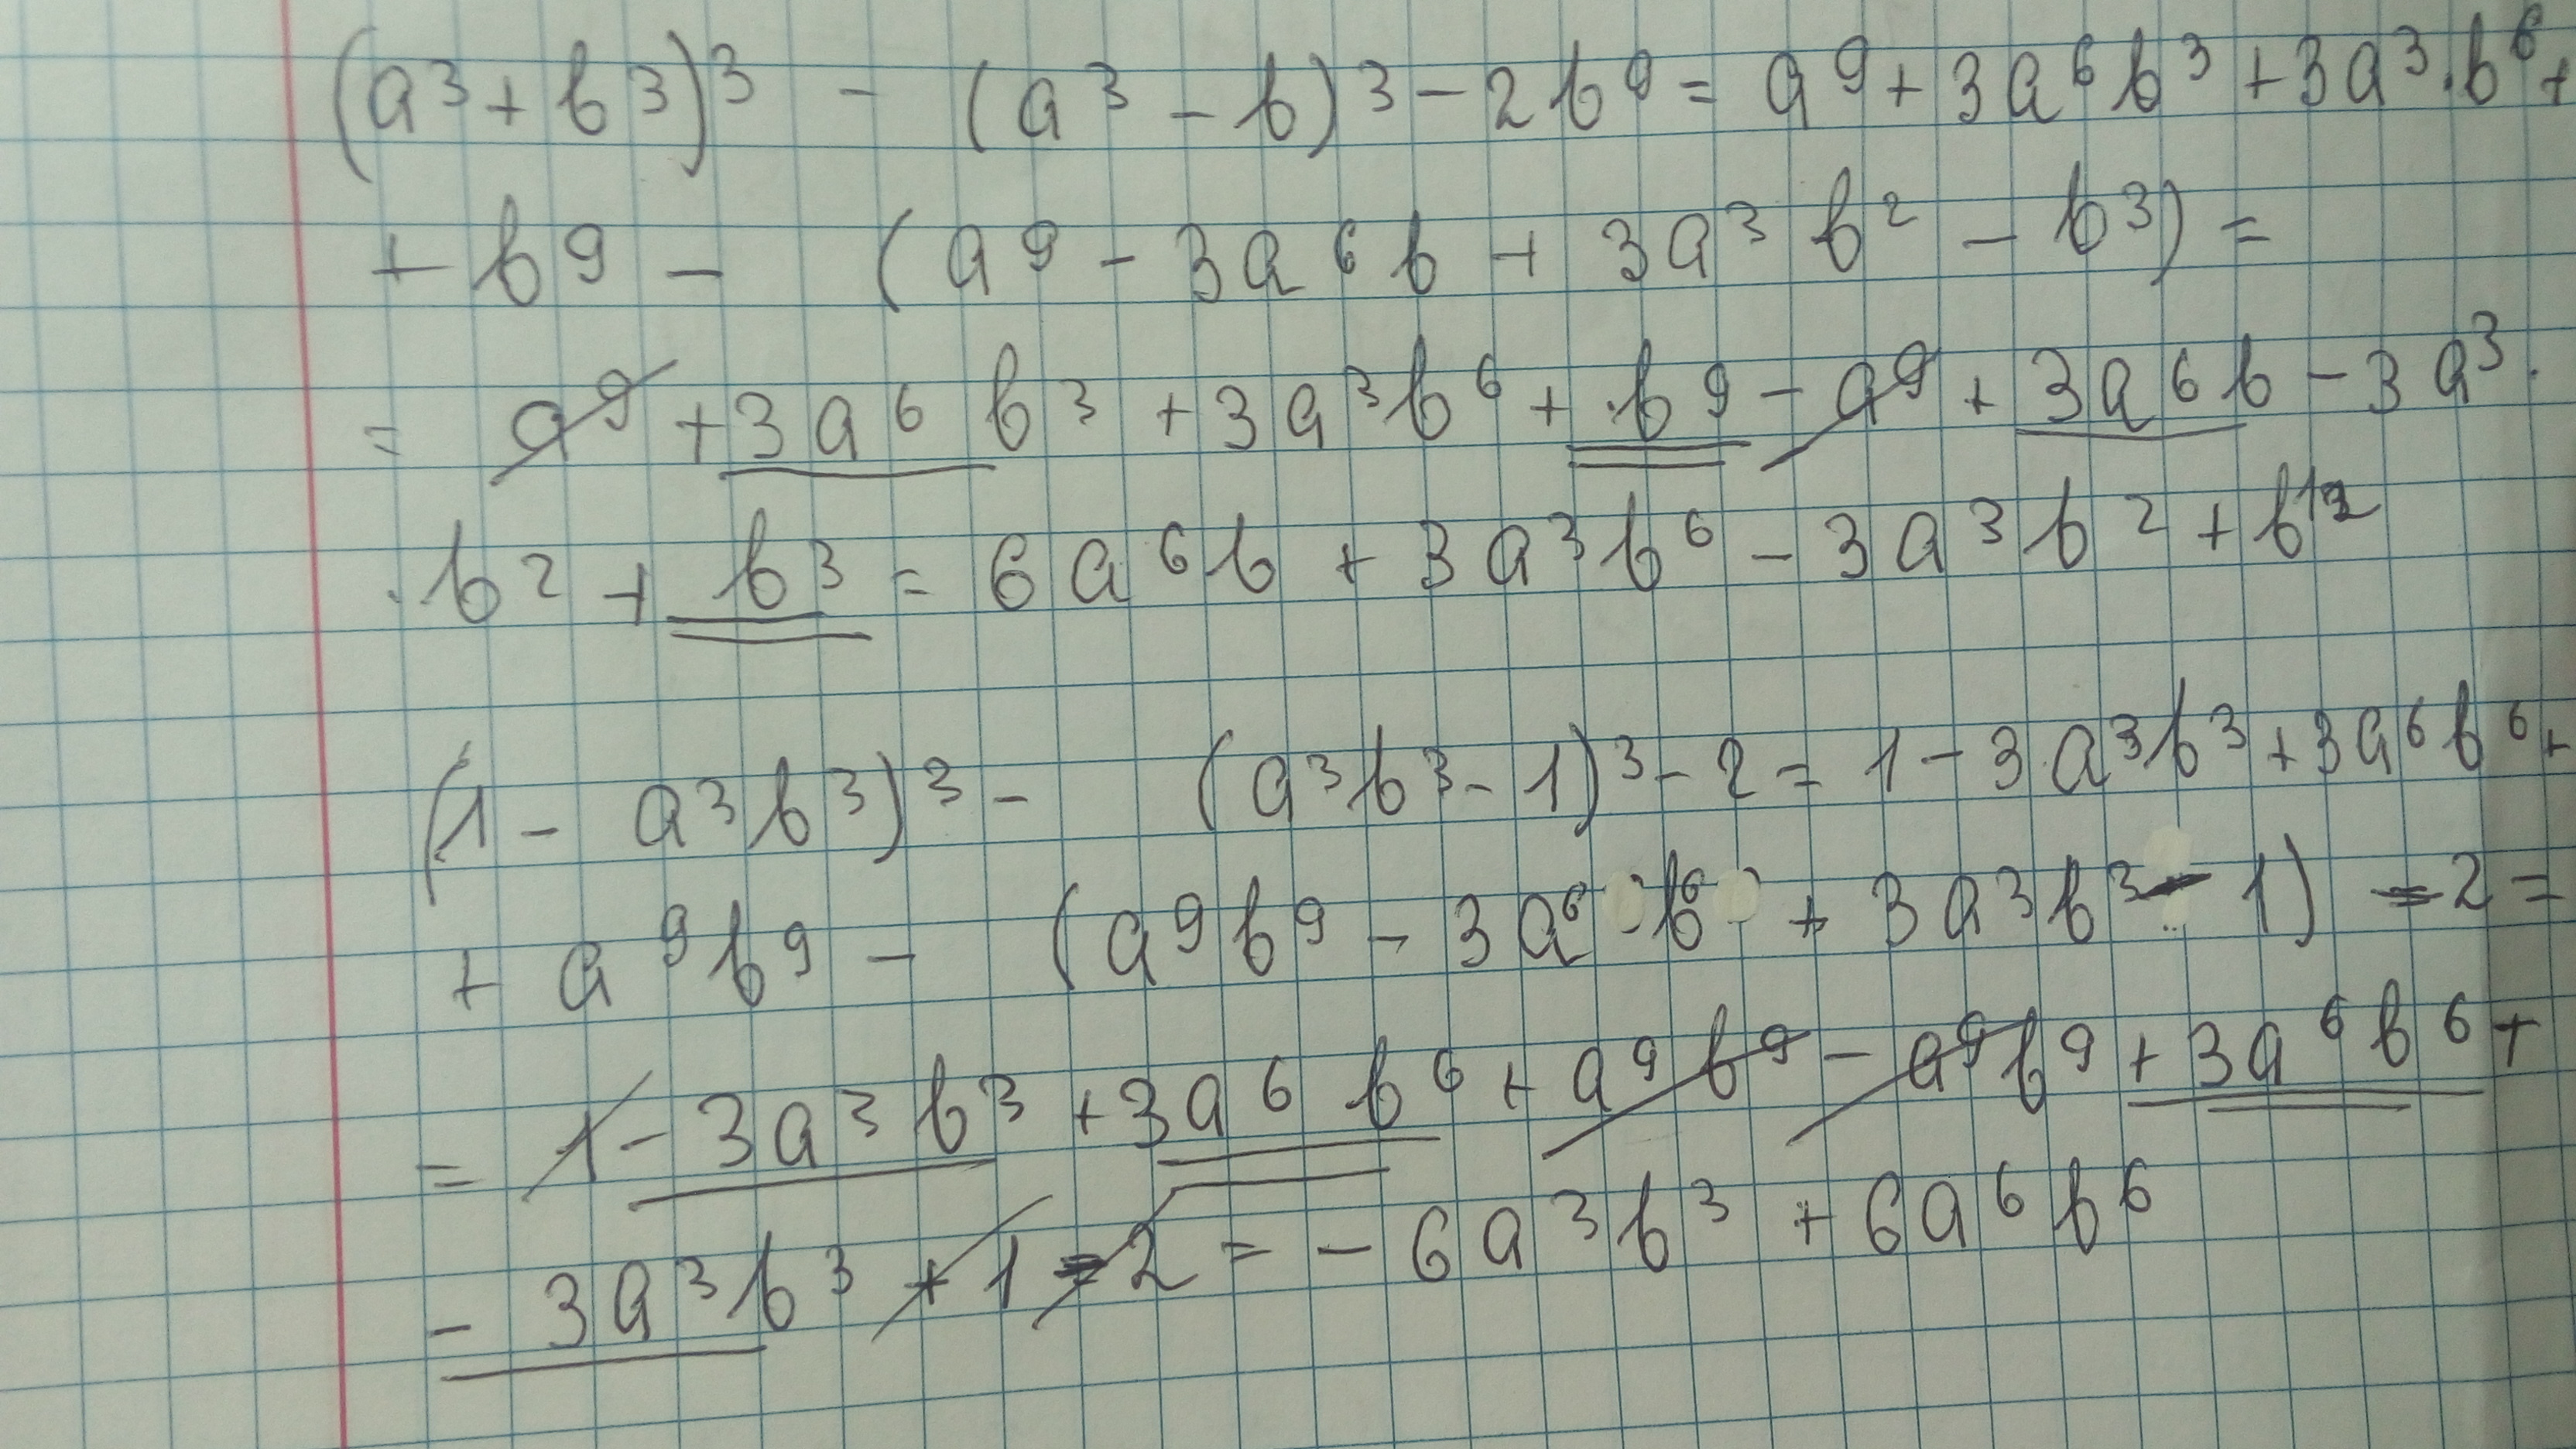 (a³ + b³)³ - (a³ - b)³ - 2b⁹ = a⁹ + 3a⁶b³ + 3a³·b⁶ +
+ b⁹ - (a⁹ - 3a⁶b + 3a³b² - b³) =
= a⁹ + 3a⁶b³ + 3a³b⁶ + b⁹ - a⁹ + 3a⁶b - 3a³·
·b² + b³ = 6a⁶b + 3a³b⁶ - 3a³b² + b¹²
(1 - a³b³)³ - (a³b³ - 1)³ - 2 = 1 - 3a³b³ + 3a⁶b⁶ +
+ a⁹b⁹ - (a⁹b⁹ - 3a⁶b⁶ + 3a³b³ - 1) - 2 =
= 1 - 3a³b³ + 3a⁶b⁶ + a⁹b⁹ - a⁹b⁹ + 3a⁶b⁶ +
- 3a³b³ + 1 - 2 = - 6a³b³ + 6a⁶b⁶